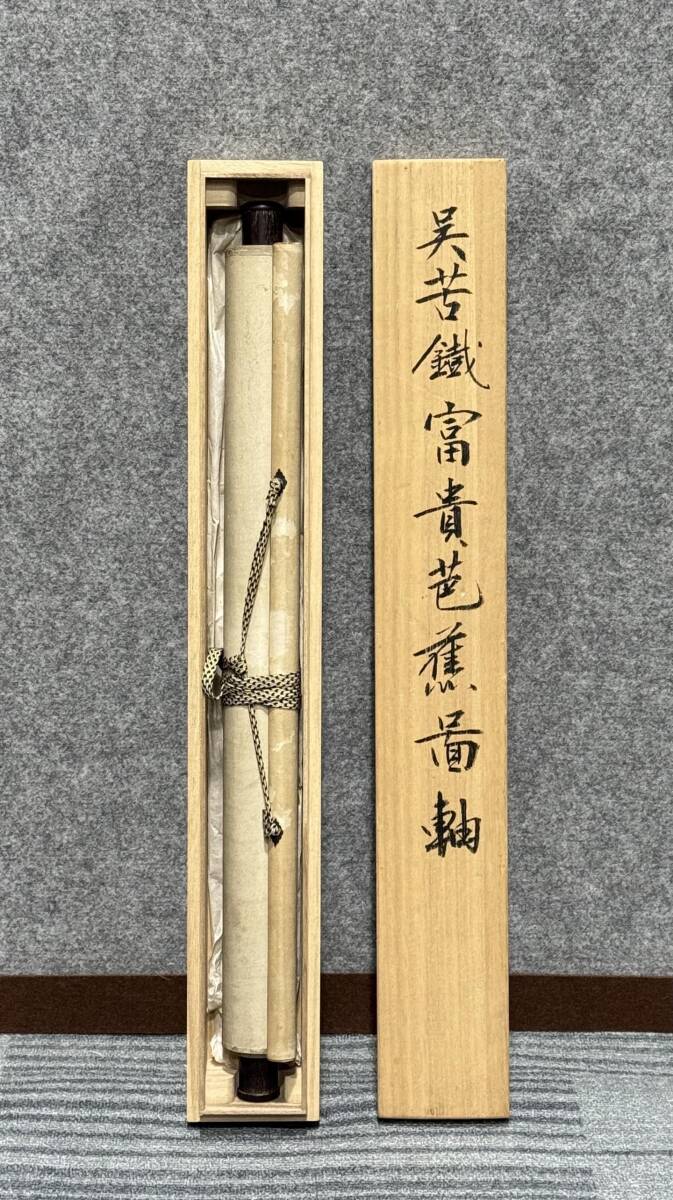 吴苦鐵富貴芭蕉啚軸